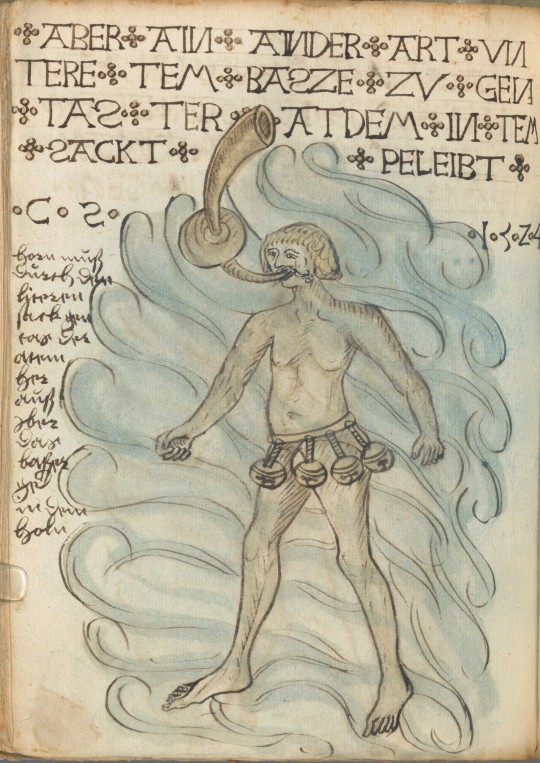 ABER AIN ANDER ART VN
TERE TEM BASZE ZV GEN
TAS TER ATDEM IN TEM
SACKT PELEIBT
C S
1 5 2 4
horn muß
durch den
literen
sack gen
tas der
atem
her
auß
aber
das
baser
ge
in dem
holn